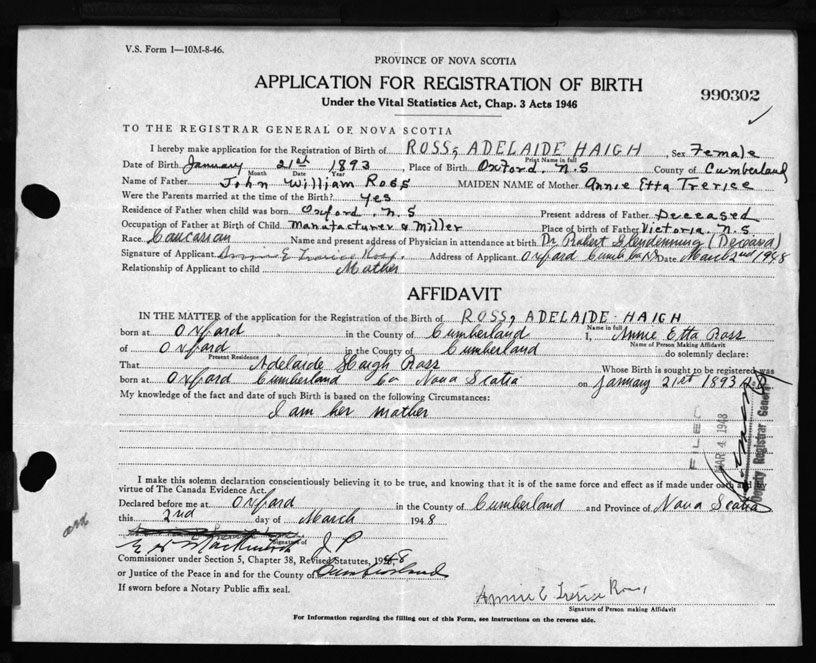 V.S. Form 1—10M-8-46.
PROVINCE OF NOVA SCOTIA
APPLICATION FOR REGISTRATION OF BIRTH
990302
Under the Vital Statistics Act, Chap. 3 Acts 1946
TO THE REGISTRAR GENERAL OF NOVA SCOTIA
I hereby make application for the Registration of Birth of ROSS, ADELAIDE HAIGH, Sex Female
Print Name in full
Date of Birth January 21st 1893 Place of Birth Oxford, N.S County of Cumberland
Month Date Year
Name of Father John William Ross MAIDEN NAME of Mother Annie Etta Trerice
Were the Parents married at the time of the Birth? Yes
Residence of Father when child was born Oxford, N.S Present address of Father Deceased
Occupation of Father at Birth of Child Manufacturer & Miller Place of birth of Father Victoria, N.S
Race Caucasian Name and present address of Physician in attendance at birth Dr (Deceased)
Signature of Applicant Annie E Trerice Ross Address of Applicant Oxford Date March 2nd 1948
Relationship of Applicant to child Mother
AFFIDAVIT
IN THE MATTER of the application for the Registration of the Birth of ROSS, ADELAIDE HAIGH
Name in full
born at Oxford in the County of Cumberland I, Annie Etta Ross
Name of Person Making Affidavit
of Oxford in the County of Cumberland do solemnly declare:
Present Residence
That Adelaide Haigh Ross Whose Birth is sought to be registered was
born at Oxford Cumberland Co Nova Scotia on January 21st 1893 A.D.
My knowledge of the fact and date of such Birth is based on the following Circumstances:
I am her mother
FILED
MAR 4 1948
Deputy Registrar General
I make this solemn declaration conscientiously believing it to be true, and knowing that it is of the same force and effect as if made under oath and by
virtue of The Canada Evidence Act.
Declared before me at Oxford in the County of Cumberland and Province of Nova Scotia
this 2nd day of March 1948
Signature of
J P
Commissioner under Section 5, Chapter 38, Revised Statutes, 1948
or Justice of the Peace in and for the County of Cumberland
If sworn before a Notary Public affix seal.
Annie E Trerice Ross
Signature of Person making Affidavit
For Information regarding the filling out of this Form, see instructions on the reverse side.